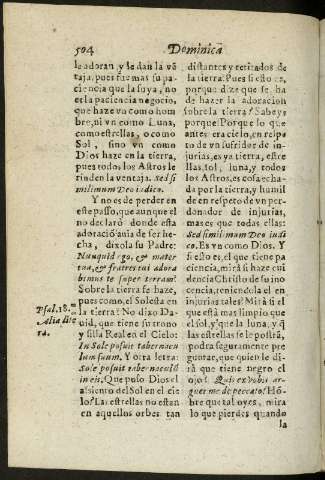 504 Dominica
le adoran, y le dan la vē
taja, pues fue mas su pa
ciencia que la suya, no
es la paciencia negocio,
que haze vn como hom
bre, ni vn como Luna,
como estrellas, o como
Sol, sino vn como
Dios haze en la tierra,
pues todos los Astros le
rinden la ventaja. Sed si
milimum Deo iudico.
Y no es de perder en
este passo, que aunque el
no declarò donde esta
adoració auia de ser he
cha, dixola su Padre:
Nunquid ego, & mater
tua, & fratres tui adora
bimus te super terram?
Sobre la tierra se haze,
pues como, el Sol esta en
la tierra? No dixo Da-
uid, que tiene su trono
y silla Real en el Cielo:
In Sole posuit tabernacu
lum suum. Y otra letra:
Sole posuit tabernaculū
in eis, Que puso Dios el
assiento del Sol en el cie
lo? Las estrellas no estan
en aquellos orbes tan
Psal. 18.
Alia lite
ra.
distantes y retirados de
la tierra? Pues si esto es,
porque dize que se ha
de hazer la adoracion
sobre la tierra? Sabeys
porque? Porque lo que
antes era cielo, en respe
to de vn sufridor de in-
jurias, es ya tierra, estre
llas, sol, luna, y todos
los Astros, es cosa echa-
da por la tierra, y humil
de en respeto de vn per-
donador de injurias,
mas es que todas ellas:
Sed similimum Deo iudi
co. Es vn como Dios. Y
si esto es, el que tiene pa
ciencia, mirà si haze cui
dencia Christo de su ino
cencia, teniendola el en
injurias tales? Mirà si el
que està mas limpio que
el sol, y que la luna, y q̄
las estrellas se le postrā,
podra seguramente pre
guntar, que quien le di-
rà que tiene negro el
ojo? Quis ex vobis ar-
guet me de peccato? Hō-
bre que tal oyes, mira
lo que pierdes quando
la